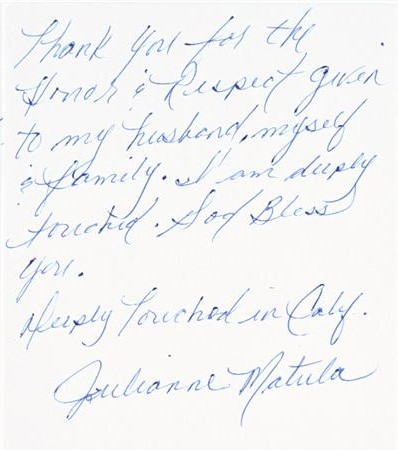 Thank you for the
Honor & Respect given
to my husband, myself
& family. I am deeply
touched. God Bless
you.
Deeply Touched in Calif.
Julianne Matula